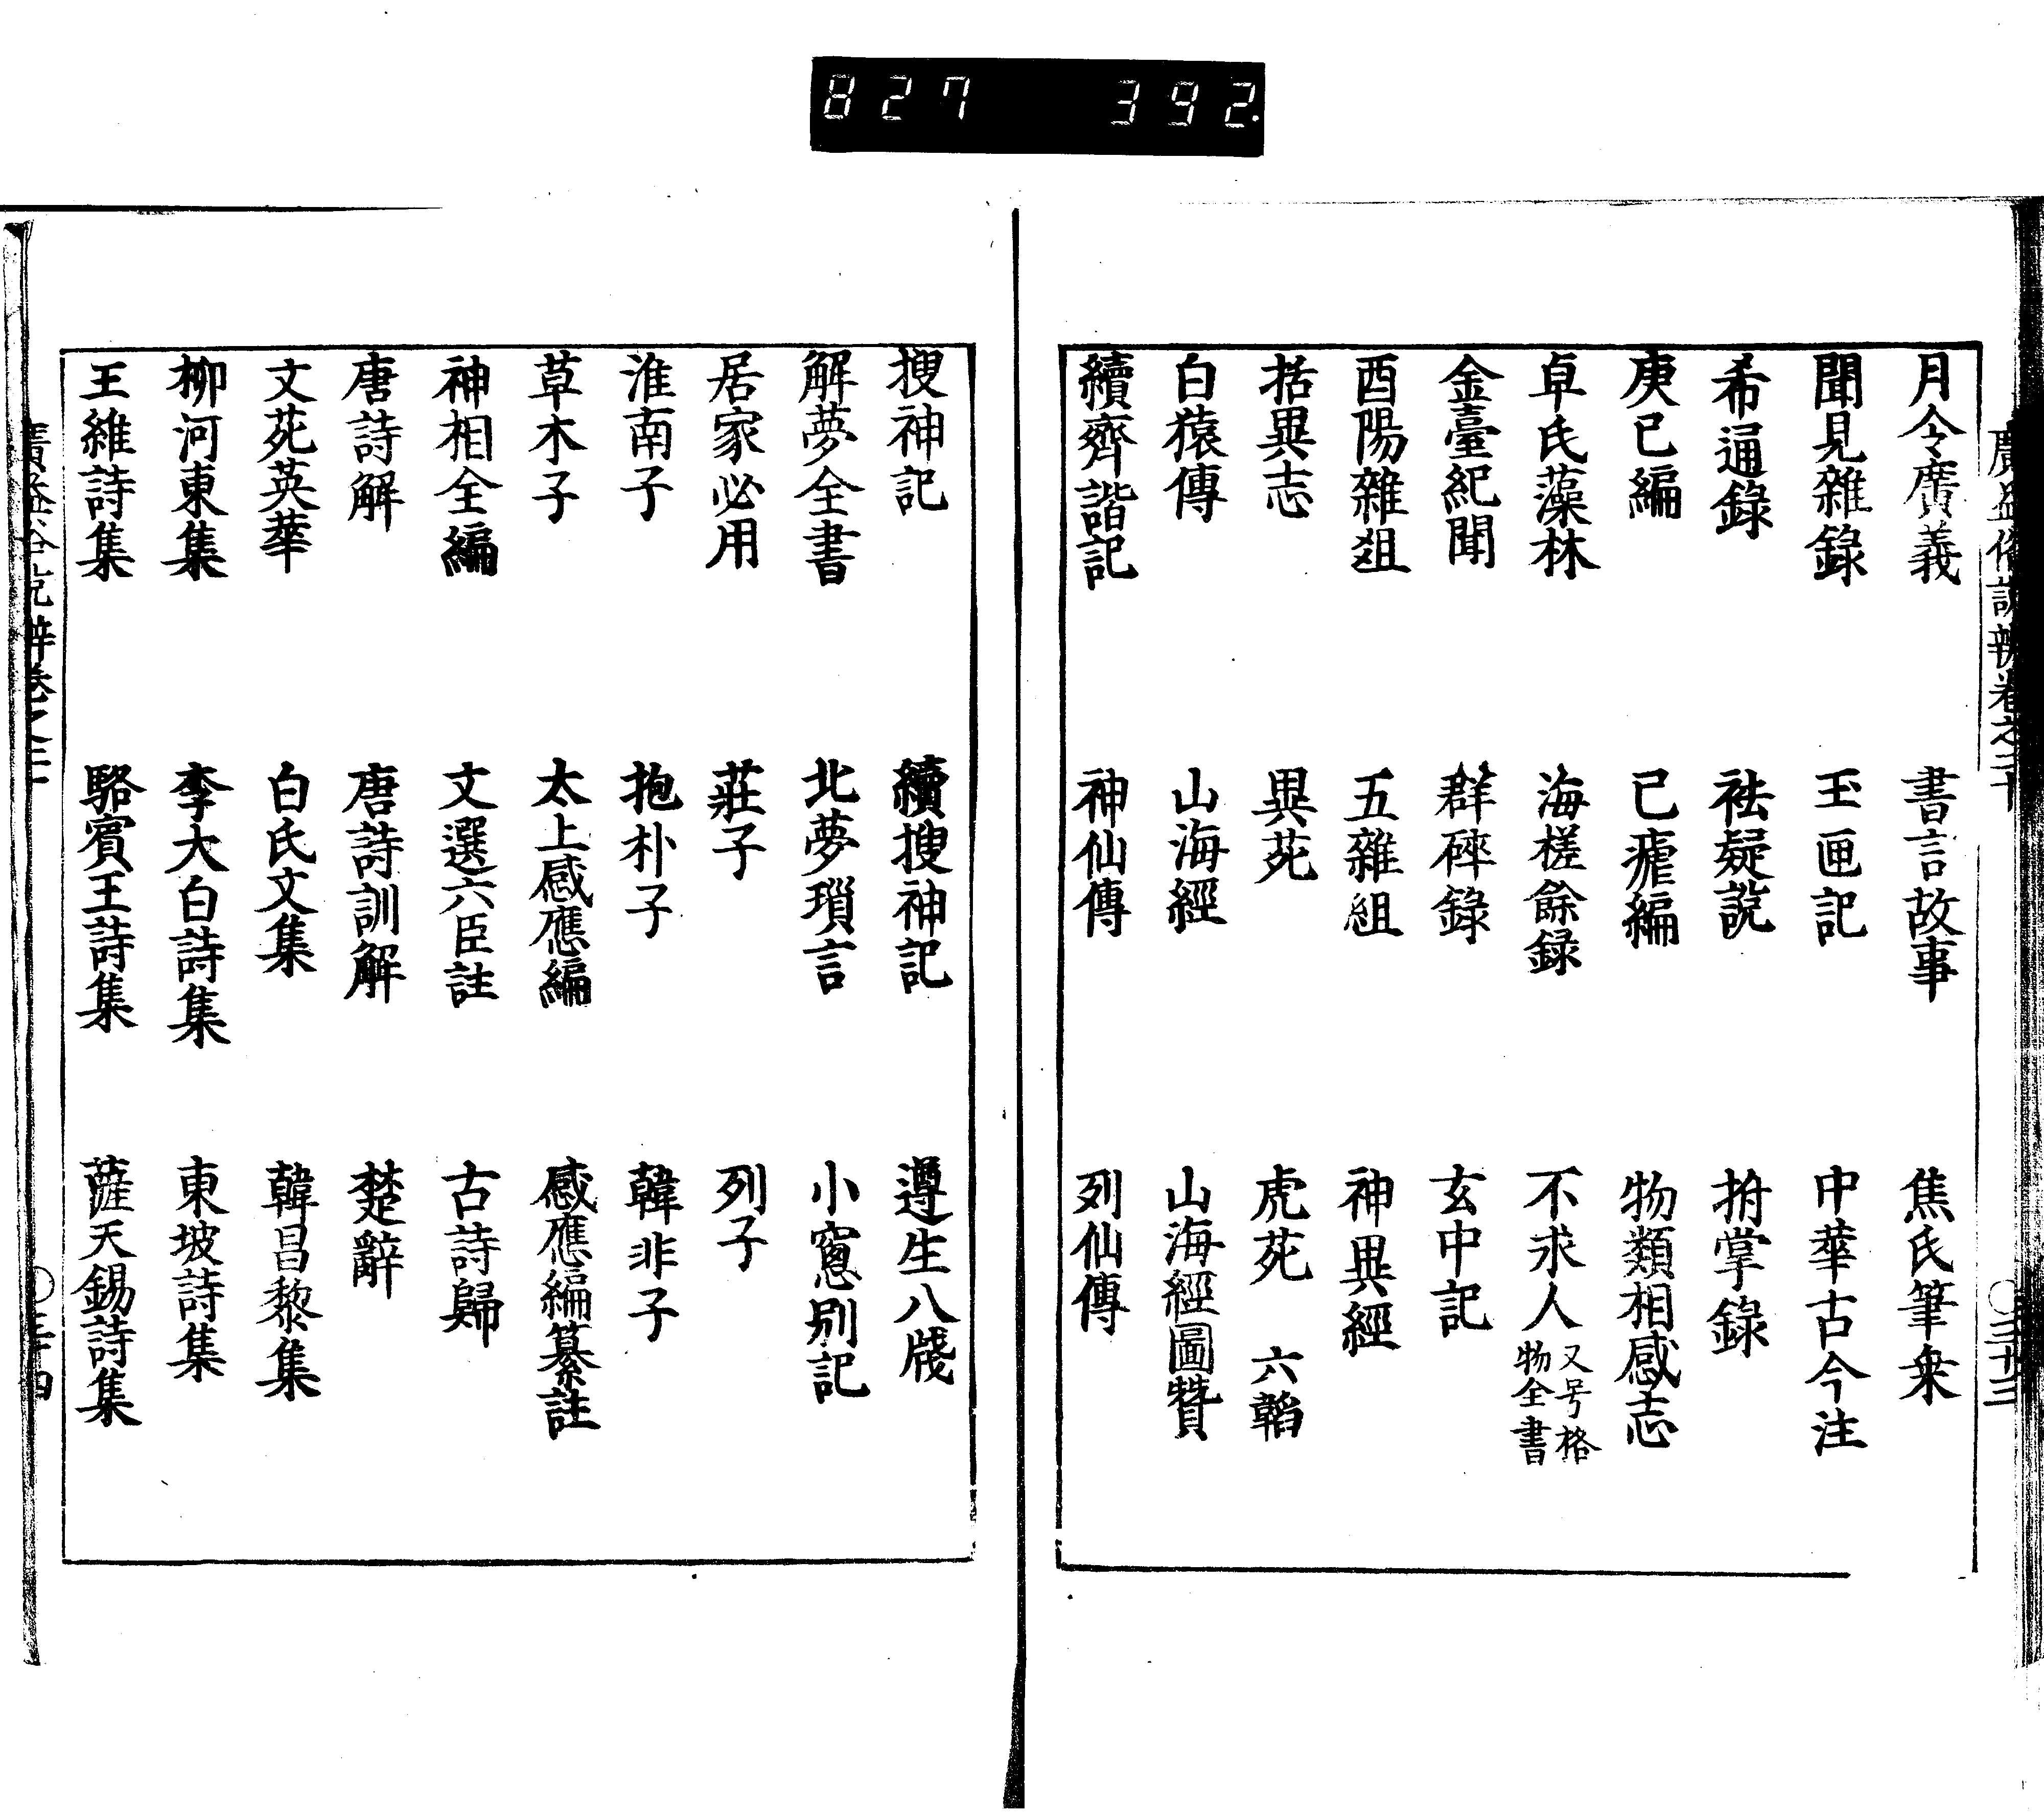 827 392.
月令廣義 書言故事 焦氏筆乗
聞見雜錄 玉匣記 中華古今注
希通錄 袪疑說 拊掌錄
庚已編 已瘧編 物類相感志
卓氏藻林 海槎餘録 不求人 又号格物全書
金臺紀聞 群碎錄 玄中記
酉陽雜俎 五雜組 神異經
括異志 異苑 虎苑 六韜
白猿傳 山海經 山海經圖贊
續齊諧記 神仙傳 列仙傳
搜神記 續搜神記 遵生八牋
解夢全書 北夢瑣言 小窻別記
居家必用 莊子 列子
淮南子 抱朴子 韓非子
草木子 太上感應編 感應編纂註
神相全編 文選六臣註 古詩歸
唐詩解 唐詩訓解 楚辭
文苑英華 白氏文集 韓昌黎集
柳河東集 李大白詩集 東坡詩集
王維詩集 駱賓王詩集 薩天錫詩集